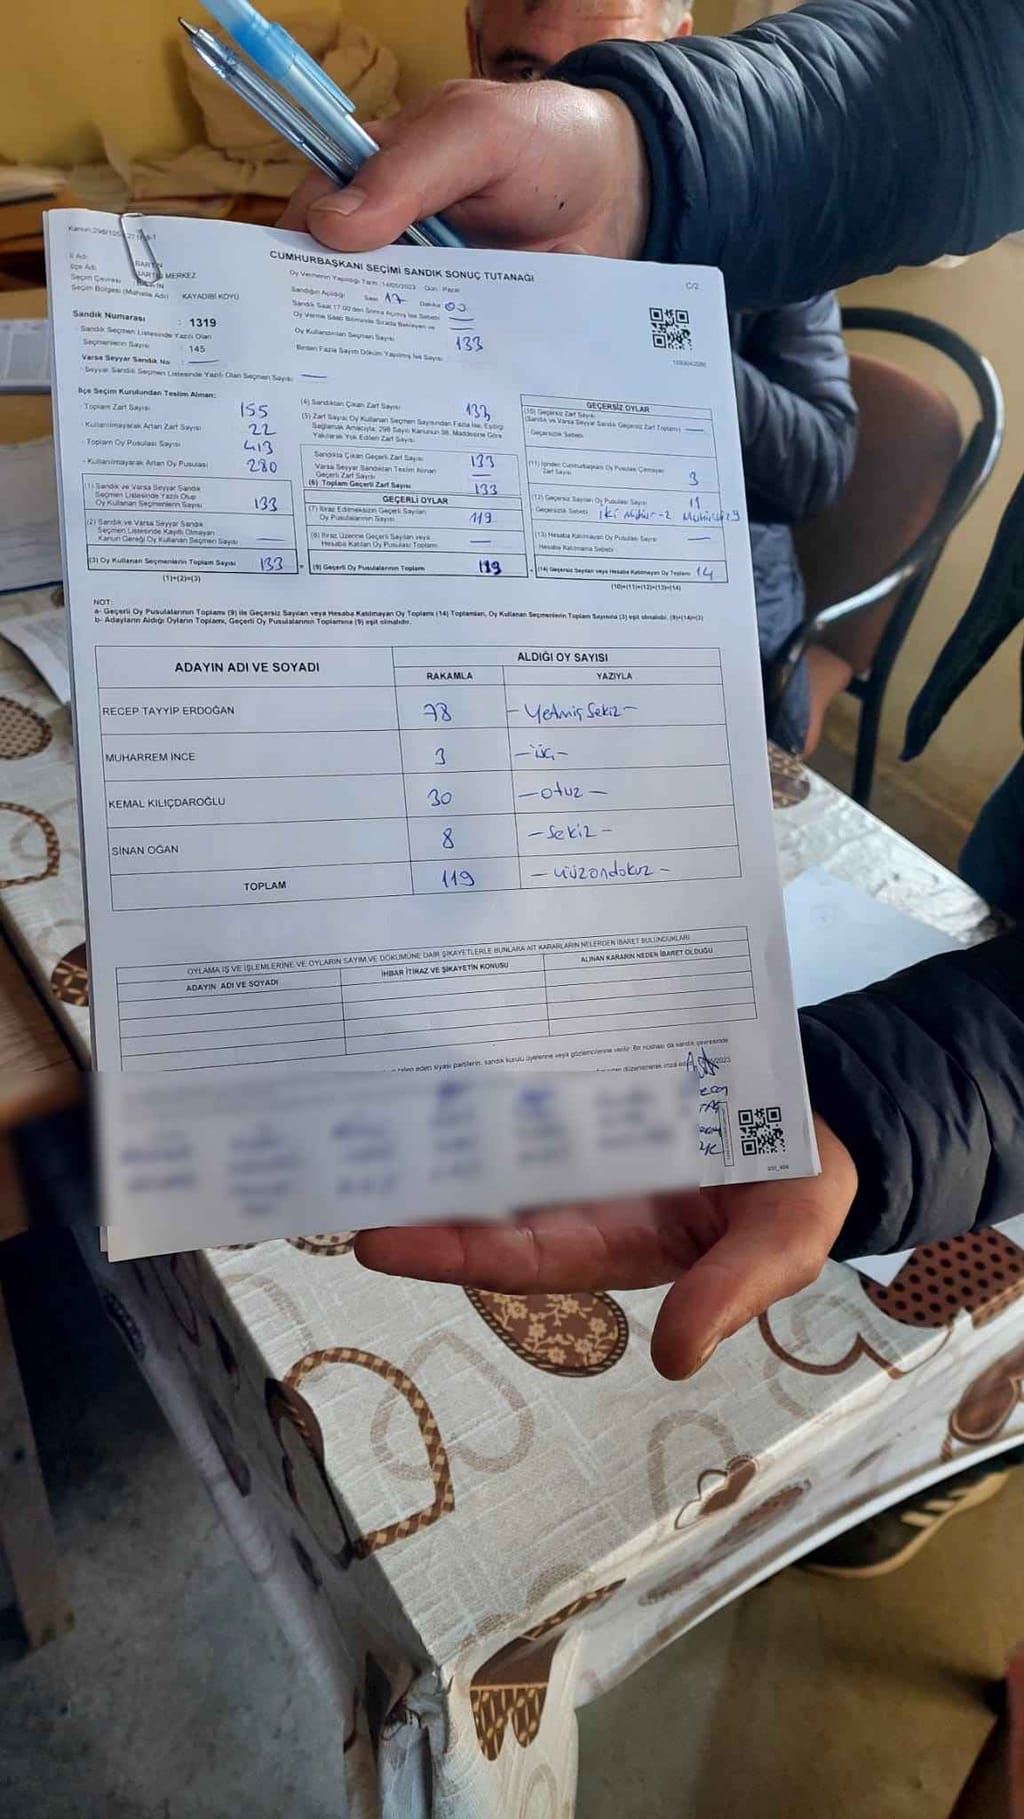 CUMHURBAŞKANI SEÇİMİ SANDIK SONUÇ TUTANAĞI
C/2
İl Adı
İlçe Adı BARTIN MERKEZ
Seçim Çevresi BARTIN
Seçim Bölgesi (Mahalle Adı) KAYADİBİ KÖYÜ
Sandık Numarası : 1319
Sandık Seçmen Listesinde Yazılı Olan
Seçmenlerin Sayısı : 145
Varsa Seyyar Sandık No :
Seyyar Sandık Seçmen Listesinde Yazılı Olan Seçmen Sayısı :
Oy Vermenin Yapıldığı Tarih : 14/05/2023 Gün : Pazar
Sandığın Açıldığı Saat 17 Dakika 00
Oy Kullandırılan Seçmen Sayısı 133
Birden Fazla Sayım Döküm Yapılmış İse Sayısı
İlçe Seçim Kurulundan Teslim Alınan:
- Toplam Zarf Sayısı 155
- Kullanılmayarak Artan Zarf Sayısı 22
- Toplam Oy Pusulası Sayısı 413
- Kullanılmayarak Artan Oy Pusulası 280
(1) Sandık ve Varsa Seyyar Sandık
Seçmen Listesinde Yazılı Olup
Oy Kullanan Seçmenlerin Sayısı 133
(2) Sandık ve Varsa Seyyar Sandık
Seçmen Listesinde Kayıtlı Olmayan
Kanun Gereği Oy Kullanan Seçmen Sayısı
(3) Oy Kullanan Seçmenlerin Toplam Sayısı 133
(1)+(2)=(3)
(4) Sandıktan Çıkan Zarf Sayısı 133
(5) Zarf Sayısı Oy Kullanan Seçmen Sayısından Fazla İse, Eşitliği
Sağlamak Amacıyla; 298 Sayılı Kanunun 98. Maddesine Göre
Yakılarak Yok Edilen Zarf Sayısı
Sandıkta Çıkan Geçerli Zarf Sayısı 133
Varsa Seyyar Sandıktan Teslim Alınan
Geçerli Zarf Sayısı
(6) Toplam Geçerli Zarf Sayısı 133
GEÇERLİ OYLAR
(7) İtiraz Edilmeksizin Geçerli Sayılan
Oy Pusulalarının Sayısı 119
(8) İtiraz Üzerine Geçerli Sayılan veya
Hesaba Katılan Oy Pusulası Toplamı
(9) Geçerli Oy Pusulalarının Toplamı 119
GEÇERSİZ OYLAR
(10) Geçersiz Zarf Sayısı
(Sandık ve Varsa Seyyar Sandık Geçersiz Zarf Toplamı)
Geçersizlik Sebebi
(11) İçinden Cumhurbaşkanı Oy Pusulası Çıkmayan
Zarf Sayısı 3
(12) Geçersiz Sayılan Oy Pusulası Sayısı 11
Geçersizlik Sebebi İki Mühür-2
(13) Hesaba Katılmayan Oy Pusulası Sayısı
Hesaba Katılmama Sebebi
(14) Geçersiz Sayılan veya Hesaba Katılmayan Oy Toplamı 14
(10)+(11)+(12)+(13)=(14)
NOT:
a- Geçerli Oy Pusulalarının Toplamı (9) ile Geçersiz Sayılan veya Hesaba Katılmayan Oy Toplamı (14) Toplamları, Oy Kullanan Seçmenlerin Toplam Sayısına (3) eşit olmalıdır. (9)+(14)=(3)
b- Adayların Aldığı Oyların Toplamı, Geçerli Oy Pusulalarının Toplamına (9) eşit olmalıdır.
ADAYIN ADI VE SOYADI ALDIĞI OY SAYISI
RAKAMLA YAZIYLA
RECEP TAYYİP ERDOĞAN 78 - Yetmiş Sekiz -
MUHARREM İNCE 3 - üç -
KEMAL KILIÇDAROĞLU 30 - otuz -
SİNAN OĞAN 8 - Sekiz -
TOPLAM 119 - yüzondokuz -
OYLAMA İŞ VE İŞLEMLERİNE VE OYLARIN SAYIM VE DÖKÜMÜNE DAİR ŞİKAYETLERLE BUNLARA AİT KARARLARIN NELERDEN İBARET BULUNDUKLARI
ADAYIN ADI VE SOYADI İHBAR İTİRAZ VE ŞİKAYETİN KONUSU ALINAN KARARIN NEDEN İBARET OLDUĞU